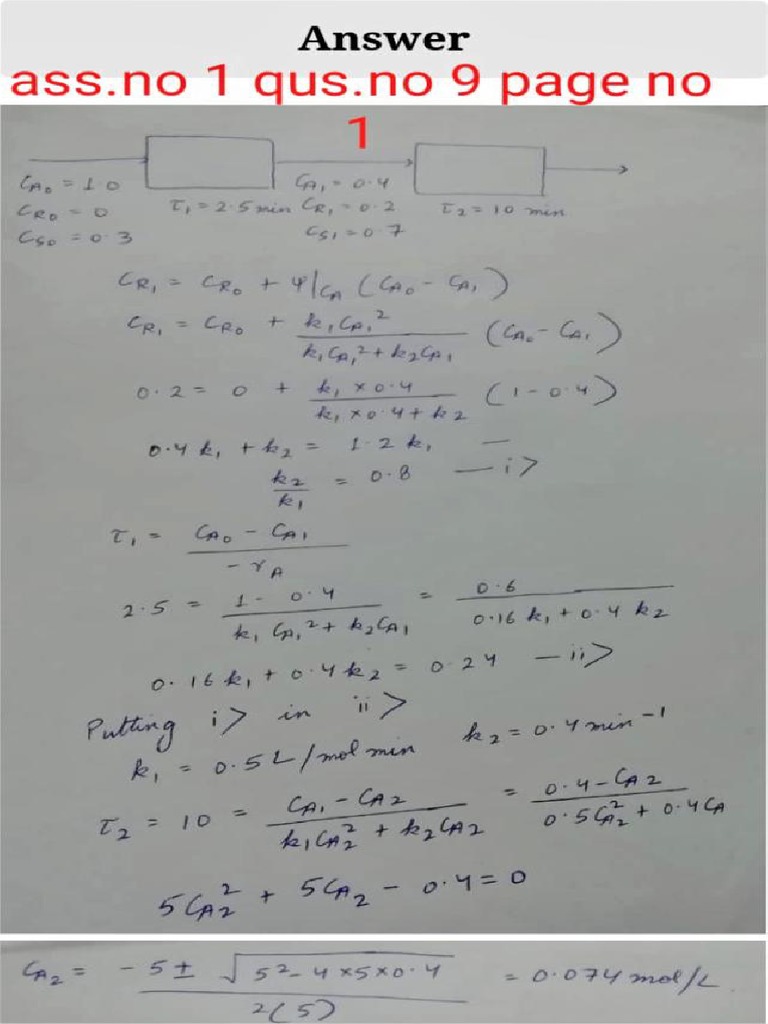 Answer
ass.no 1 qus.no 9 page no
1
C_A₀ = 1.0
C_R₀ = 0
C_S₀ = 0.3
τ₁ = 2.5 min
C_A₁ = 0.4
C_R₁ = 0.2
C_S₁ = 0.7
τ₂ = 10 min
C_R₁ = C_R₀ + φ|C_A (C_A₀ - C_A₁)
C_R₁ = C_R₀ + k₁C_A₁² / (k₁C_A₁² + k₂C_A₁) (C_A₀ - C_A₁)
0.2 = 0 + k₁ × 0.4 / (k₁ × 0.4 + k₂) (1 - 0.4)
0.4 k₁ + k₂ = 1.2 k₁ —
k₂ / k₁ = 0.8 — i>
τ₁ = (C_A₀ - C_A₁) / -r_A
2.5 = (1 - 0.4) / (k₁ C_A₁² + k₂C_A₁) = 0.6 / (0.16 k₁ + 0.4 k₂)
0.16 k₁ + 0.4 k₂ = 0.24 — ii>
Putting i> in ii>
k₁ = 0.5 L/mol min k₂ = 0.4 min⁻¹
τ₂ = 10 = (C_A₁ - C_A₂) / (k₁C_A₂² + k₂C_A₂) = (0.4 - C_A₂) / (0.5C_A₂² + 0.4C_A)
5C_A₂² + 5C_A₂ - 0.4 = 0
C_A₂ = (-5 ± √(5² - 4×5×0.4)) / 2(5) = 0.074 mol/L